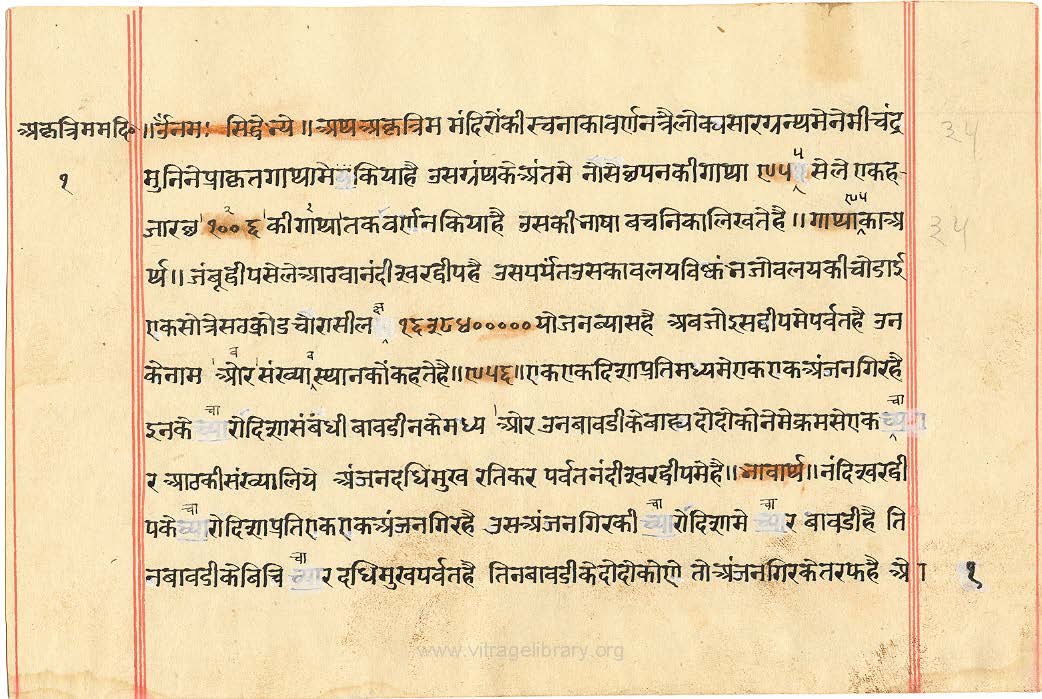 अकृत्रिममंदि
१
॥ॐनमः सिद्धेभ्ये॥ अथ अकृत्रिम मंदिरोंकीरचनाकावर्णनत्रैलोक्यसारग्रन्थमेनेमीचंद्र
मुनिनेप्राकृतगाथामेकियाहै उसग्रंथकेअंतमे नौसैछपनकीगाथा ९७५५सेलेएकह-
जारछ १००६ कीगाथातकवर्णनकियाहै उसकीभाषा बचनिकालिखतेहै॥गाथा९७५काअ
र्थ॥ जंबूद्वीपसेलेआठवानंदीश्वरद्वीपहै उसपर्यंतउसकावलयविष्कंभजोवलयकीचोडाई
एकसोत्रेसठक्रोडचौरासीलक्ष १६३८४०००००योजनव्यासहै अबजोइसद्वीपमेपर्वतहै उन
केनाम और संख्या व स्थानकोंकहतेहै॥९७५६॥एकएकदिशाप्रतिमध्यमेएकएकअंजनगिरहै
इनके चारोदिशासंबंधी बावडीनकेमध्य और उनबावडीकेबाह्यदोदोकोनेमेक्रमसेएकचा
र आठकीसंख्यालिये अंजनदधिमुख रतिकर पर्वतनंदीश्वरद्वीपमेहै॥भावार्थ॥नंदिश्वरद्वी
पकेचारोदिशाप्रतिएकएकअंजनगिरहै उसअंजनगिरकी चारोदिशामे चार बावडीहै ति
नबावडीकेबिचि चार दधिमुखपर्वतहै तिनबावडीकेदोदोकोणे तोअंजनगिरकेतरफहै औ
१
३५
३५
www.vitragelibrary.org